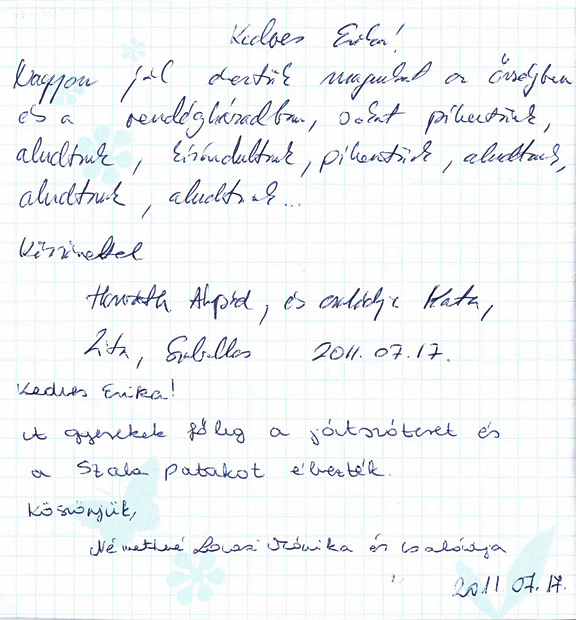 Kedves Erika!
Nagyon jól éreztük magunkat az őrségben
és a vendégházadban, sokat pihentünk,
aludtunk, kirándultunk, pihentünk, aludtunk,
aludtunk, aludtunk...
Köszönettel
Horváth Árpád, és családja Kata,
Zita, Szabolcs 2011.07.17.
Kedves Erika!
A gyerekek főleg a játszóteret és
a Szala patakot élvezték.
Köszönjük,
Némethné Mónika és családja
2011.07.17.